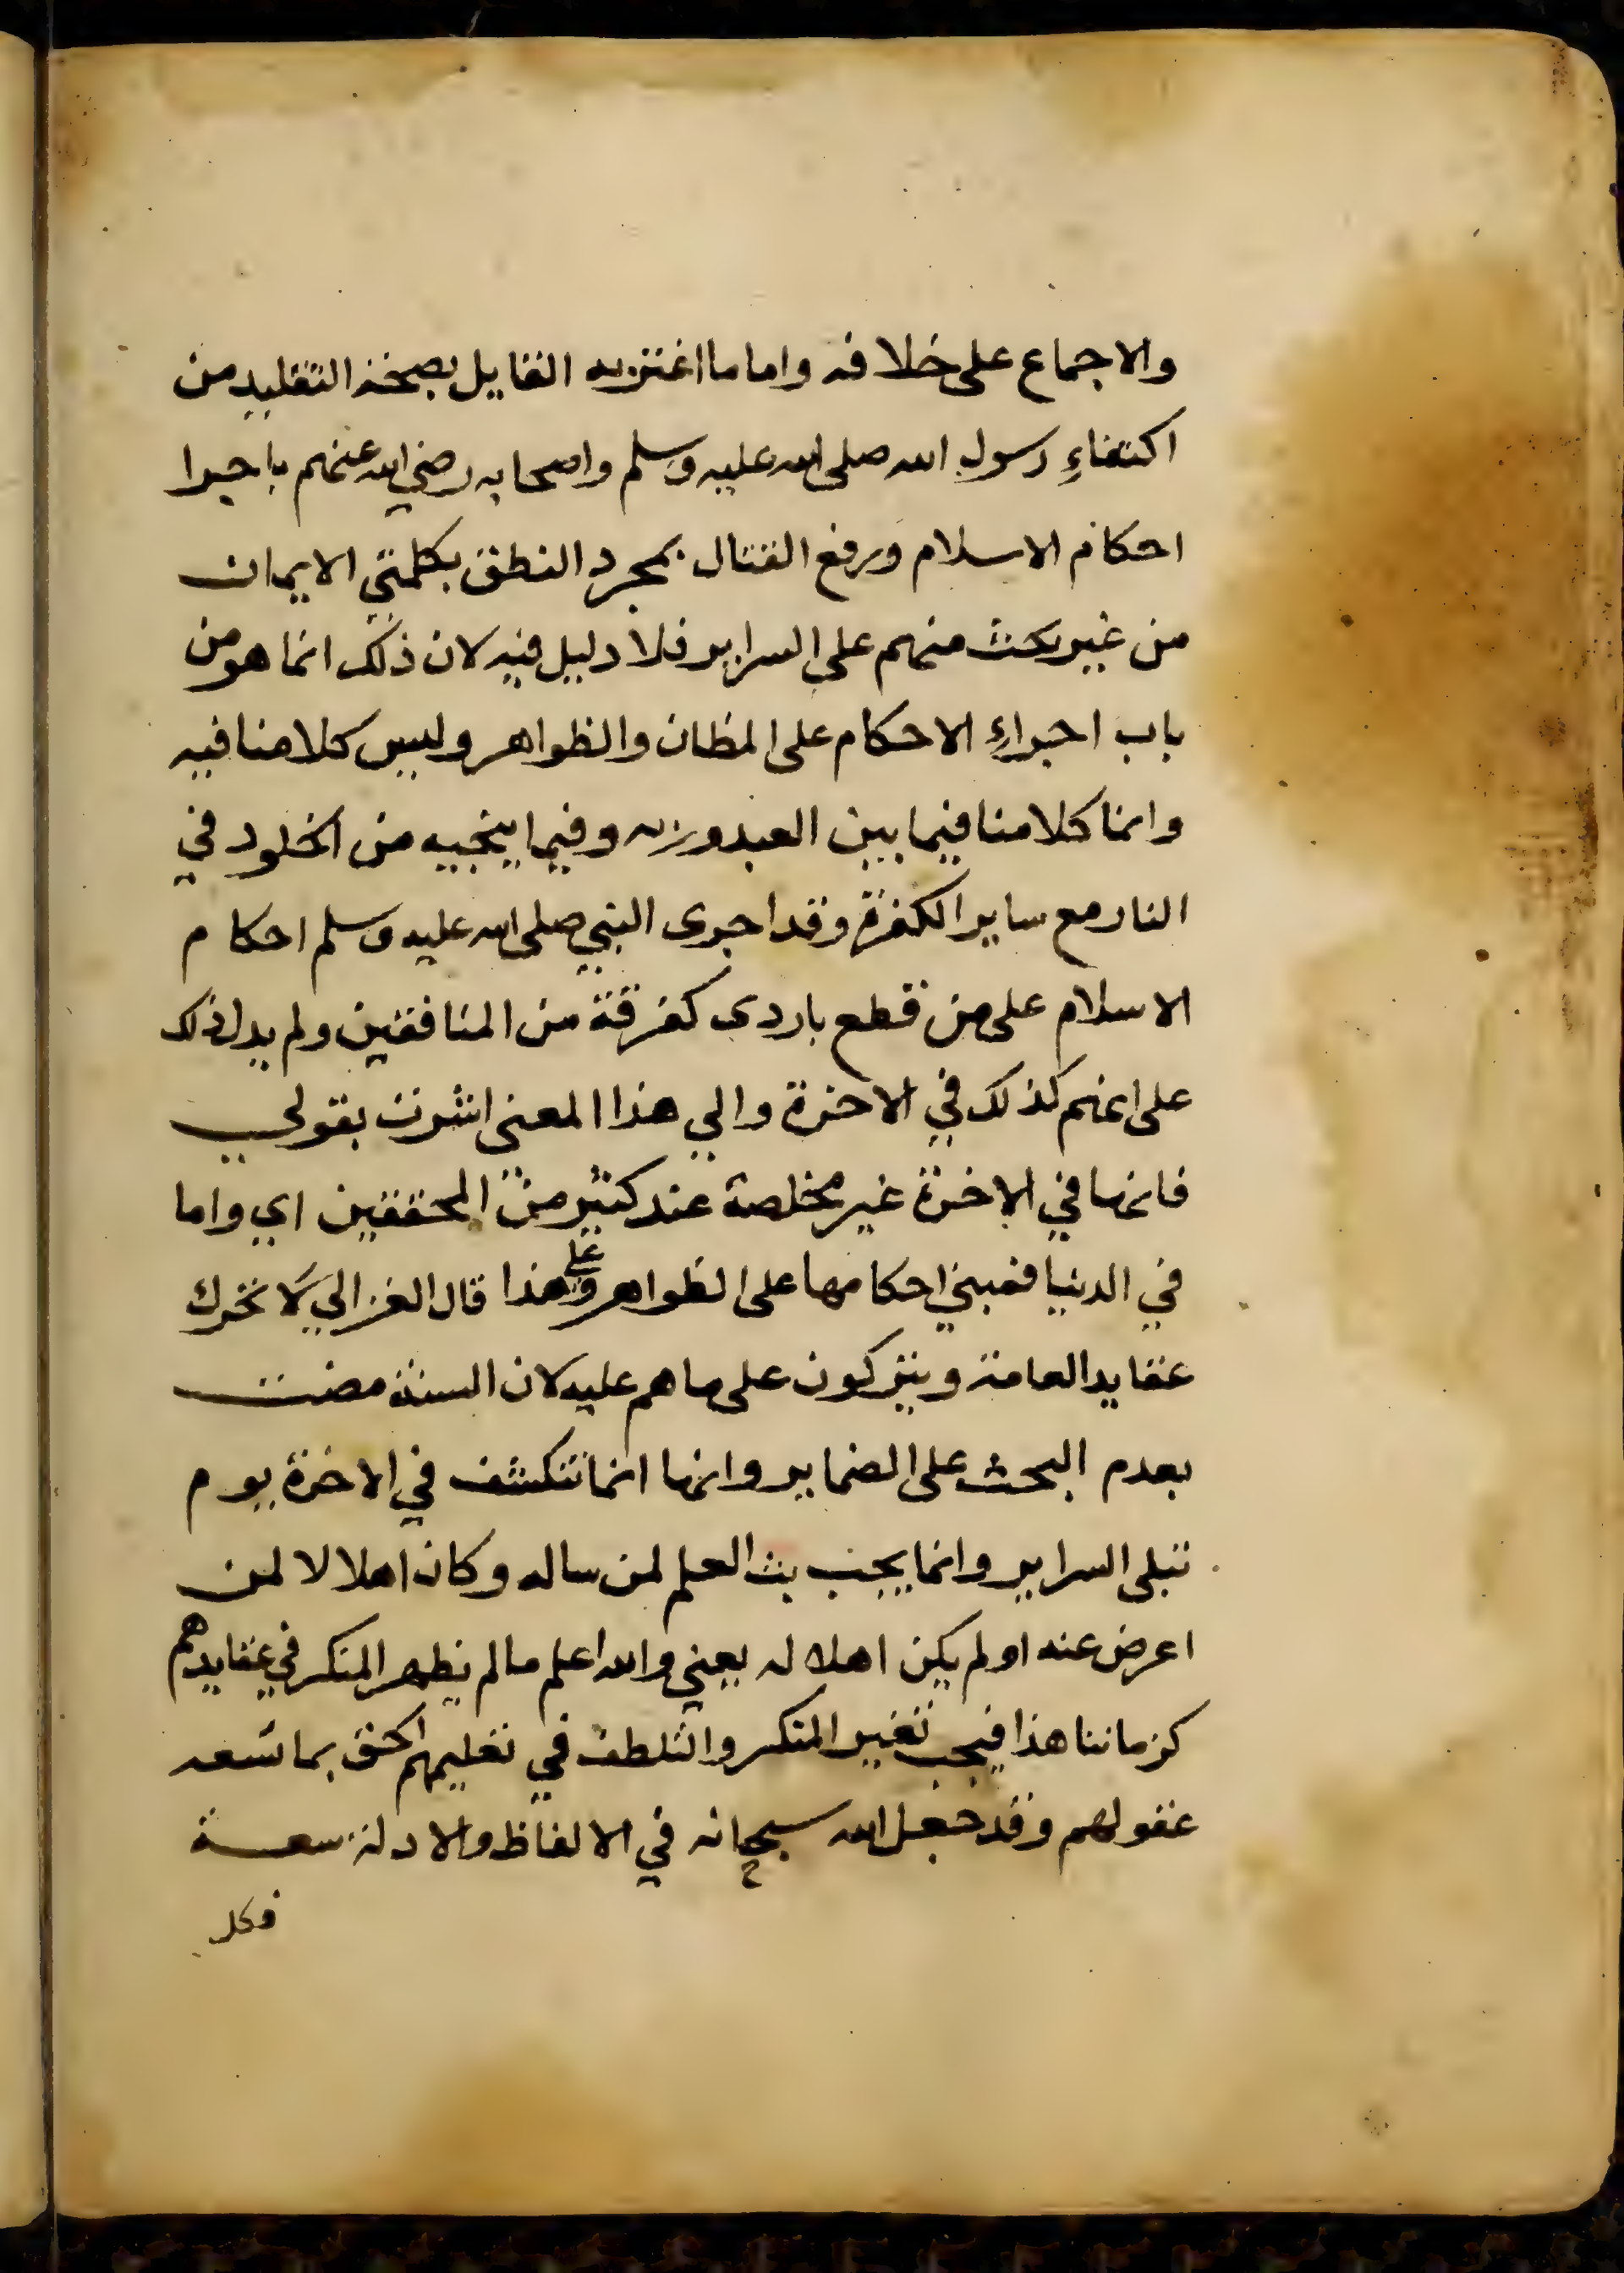 والاجماع على خلافه واما ما اغتر به القايل بصحة التقليد من
اكتفاءِ رسول الله صلى الله عليه وسلم واصحابه رضي الله عنهم باجرا
احكام الاسلام ورفع القتال بمجرد النطق بكلمتي الايمان
من غير بحث منهم على السراير فلا دليل فيه لان ذلك انما هو من
باب اجراءِ الاحكام على المظان والظواهر وليس كلامنا فيه
وانما كلامنا فيما بين العبد وربه وفيما ينجيه من الخلود في
النار مع ساير الكفرة وقد اجرى النبي صلى الله عليه وسلم احكام
الاسلام على من قطع باردى كفرقة من المنافقين ولم يدل ذلك
على انهم كذلك في الاخرة والي هذا المعنى اشرت بقولي
فانها في الاخرة غير مخلصة عند كثير من المحققين اي واما
في الدنيا فمبني احكامها على الظواهر وعلى هذا قال الغزالي لا تحرك
عقايد العامة ويتركون على ما هم عليه لان السنة مضت
بعدم البحث على الضماير وانها انما تنكشف في الاخرة يوم
تبلى السراير وانما يجب بث العلم لمن ساله وكان اهلا لا لمن
اعرض عنه او لم يكن اهلا له يعني والله اعلم ما لم يظهر المنكر في عقايدهم
كزماننا هذا فيجب تغيير المنكر والتلطف في تعليمهم الحق بما تسعه
عقولهم وقد جعل الله سبحانه في الالفاظ والادلة سعة
فكل